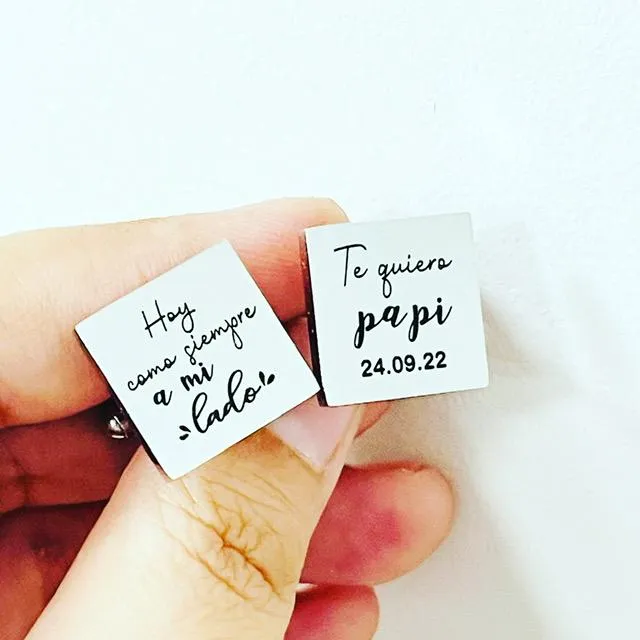 Hoy
como siempre
a mi
lado
Te quiero
papi
24.09.22